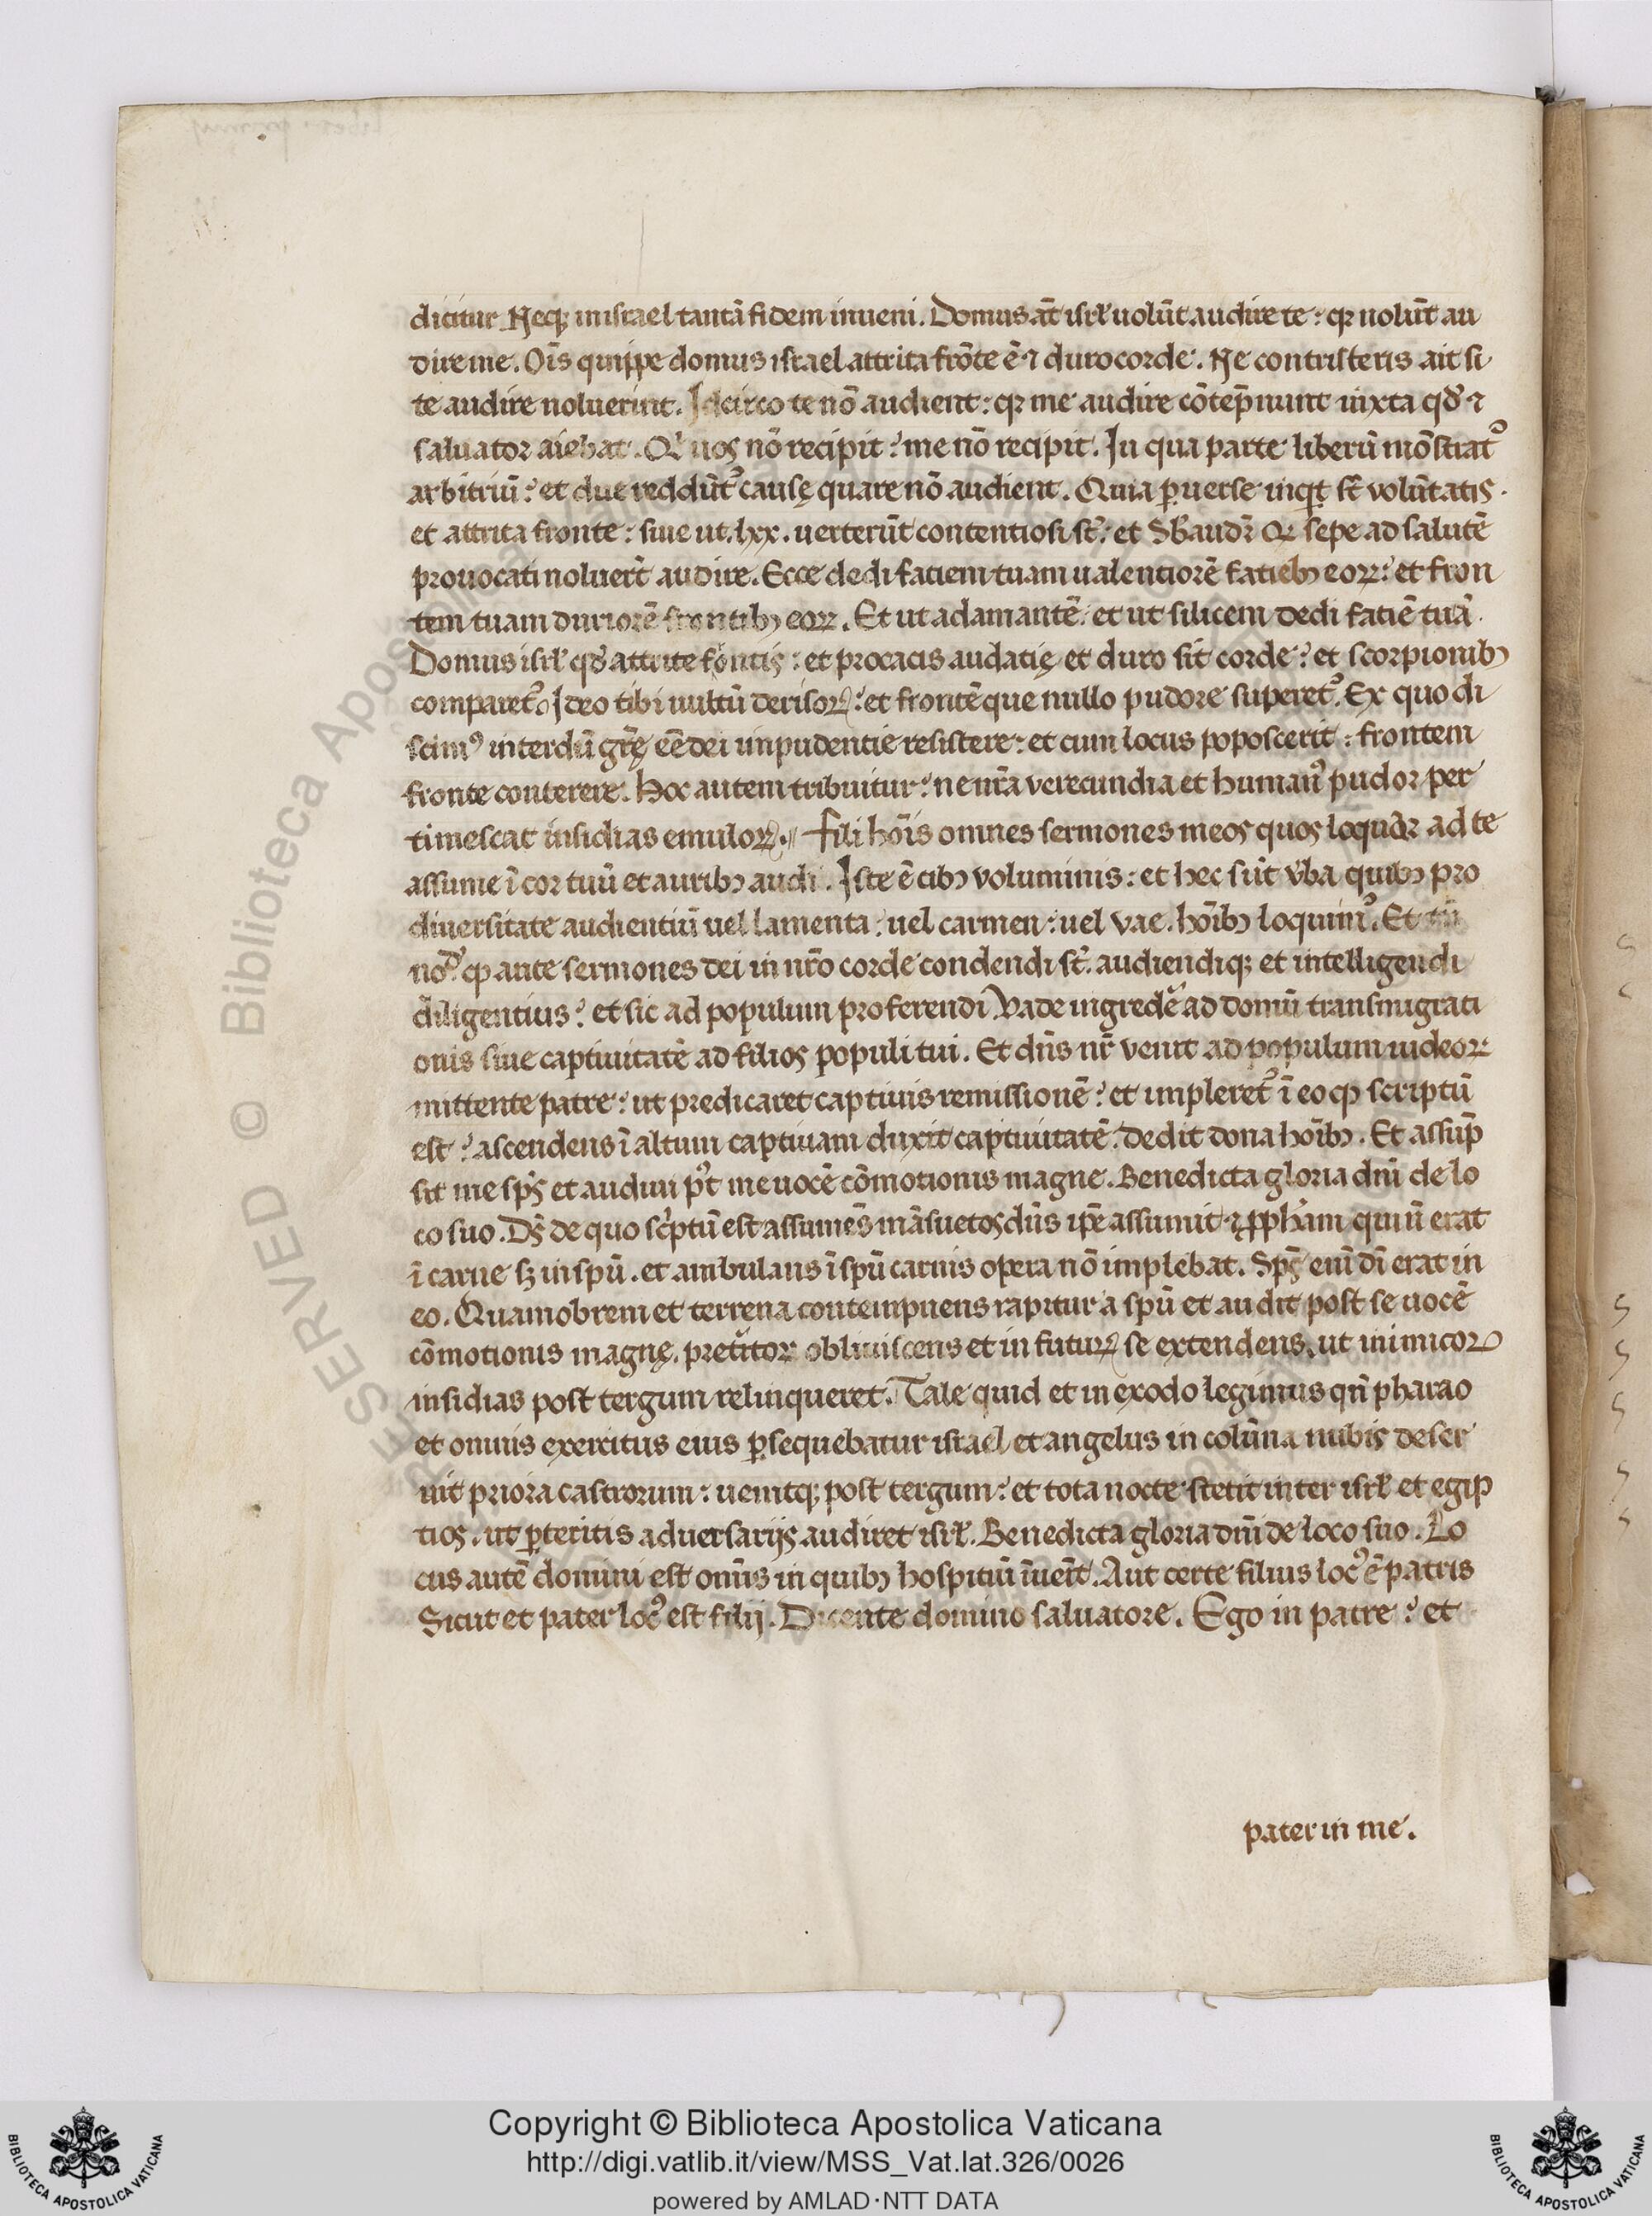 dicitur Neq; in israel tantā fidem inueni. Domus āt isrl̃ nolūt audire te: qꝛ nolūt au
dire me. Oīs quippe domus israel attrita frōte ē ⁊ duro corde. Ne contristeris ait si
te audire noluerint. Idcirco te nō audient: qꝛ me audire cōtēpnunt iuxta qd̓ ⁊
saluator aiebat. Qͥ uos nō recipit: me nō recipit. In qua parte liberū mōstratᷣ
arbitriū: et due reddūtᷣ causę quare nō audient. Quia ꝑuerse inqͥt st̄ volūtatis.
et attrita fronte: siue ut .lxx. uerterūt contentiosi st̄: et Qꝛ sepe ad salutē
prouocati noluert̄ audire. Ecce dedi faciem tuam ualentiorē faciebꝫ eoꝝ: et fron
tem tuam duriorē frontibꝫ eoꝝ. Et ut adamantē: et ut silicem dedi faciē tuā.
Domus isrl̃ qd̓ attrite frōntis: et procacis audatię et duro sit corde: et scorpionibꝫ
comparetᷣ. Ideo tibi uultū derisoꝝ: et frontē que nullo pudore superetᷣ. Ex quo di
scimꝰ interdū gr̄ę eē dei inpudentie resistere: et cum locus poposcerit: frontem
fronte conterere. Hoc autem tribuitur: ne nr̄a verecundia et humanꝰ pudor per
timescat insidias emuloꝝ. Fili hoīs omnes sermones meos quos loquor ad te
assume ī cor tuū et auribꝫ audi. Iste ē cibꝫ voluminis: et hec sūt v̓ba quibꝫ pro
diuersitate audientiū uel lamenta: uel carmen: uel vae. hoībꝫ loquimᷣ. Et tū
noᷣ ꝙ ante sermones dei in nr̄o corde condendi st̄. audiendiq; et intelligendi
diligentius: et sic ad populum proferendi Vade ingrede ad domū transmigrati
onis siue captiuitatē ad filios populi tui. Et dn̄s nr̄ venit ad populum iudeoꝝ
mittente patre: ut predicaret captiuis remissionē: et impleretᷣ ī eo ꝙ scriptū
est: ascendens ī altum captiuam duxit captiuitatē. dedit dona hoībꝫ. Et assūp
sit me sp̄s et audiui pꝰt me uocē cōmotionis magne. Benedicta gloria dn̄i de lo
co suo. Ds̄ de quo scͥptū est assumēs māsuetos dn̄s ip̄e assumit ⁊ ꝓpham qui nō erat
ī carne sꝫ in spū. et ambulans ī spū carnis opera nō implebat. Sp̄s enī dī erat in
eo. Quamobrem et terrena contempnens rapitur a spū et audit post se uocē
cōmotionis magnę. preteritoꝝ obliuiscens et in futuꝝ se extendens. ut inimicoꝝ
insidias post tergum relinqueret. Tale quid et in exodo legimus qn̄ pharao
et omnis exercitus eius ꝑsequebatur israel et angelus in colūna nubis deser
uit priora castrorum: uenitq; post tergum: et tota nocte stetit inter isrl̃ et egip
tios. ut p̄teritis aduersarijs audiret isrl̃. Benedicta gloria dn̄i de loco suo. Lo
cus autē domini est omīs in quibꝫ hospitiū īuenīt. Aut certe filius locꝰ ē patris
Sicut et pater locꝰ est filij. Dicente domino saluatore. Ego in patre: et
pater in me.
Copyright © Biblioteca Apostolica Vaticana
http://digi.vatlib.it/view/MSS_Vat.lat.326/0026
powered by AMLAD·NTT DATA